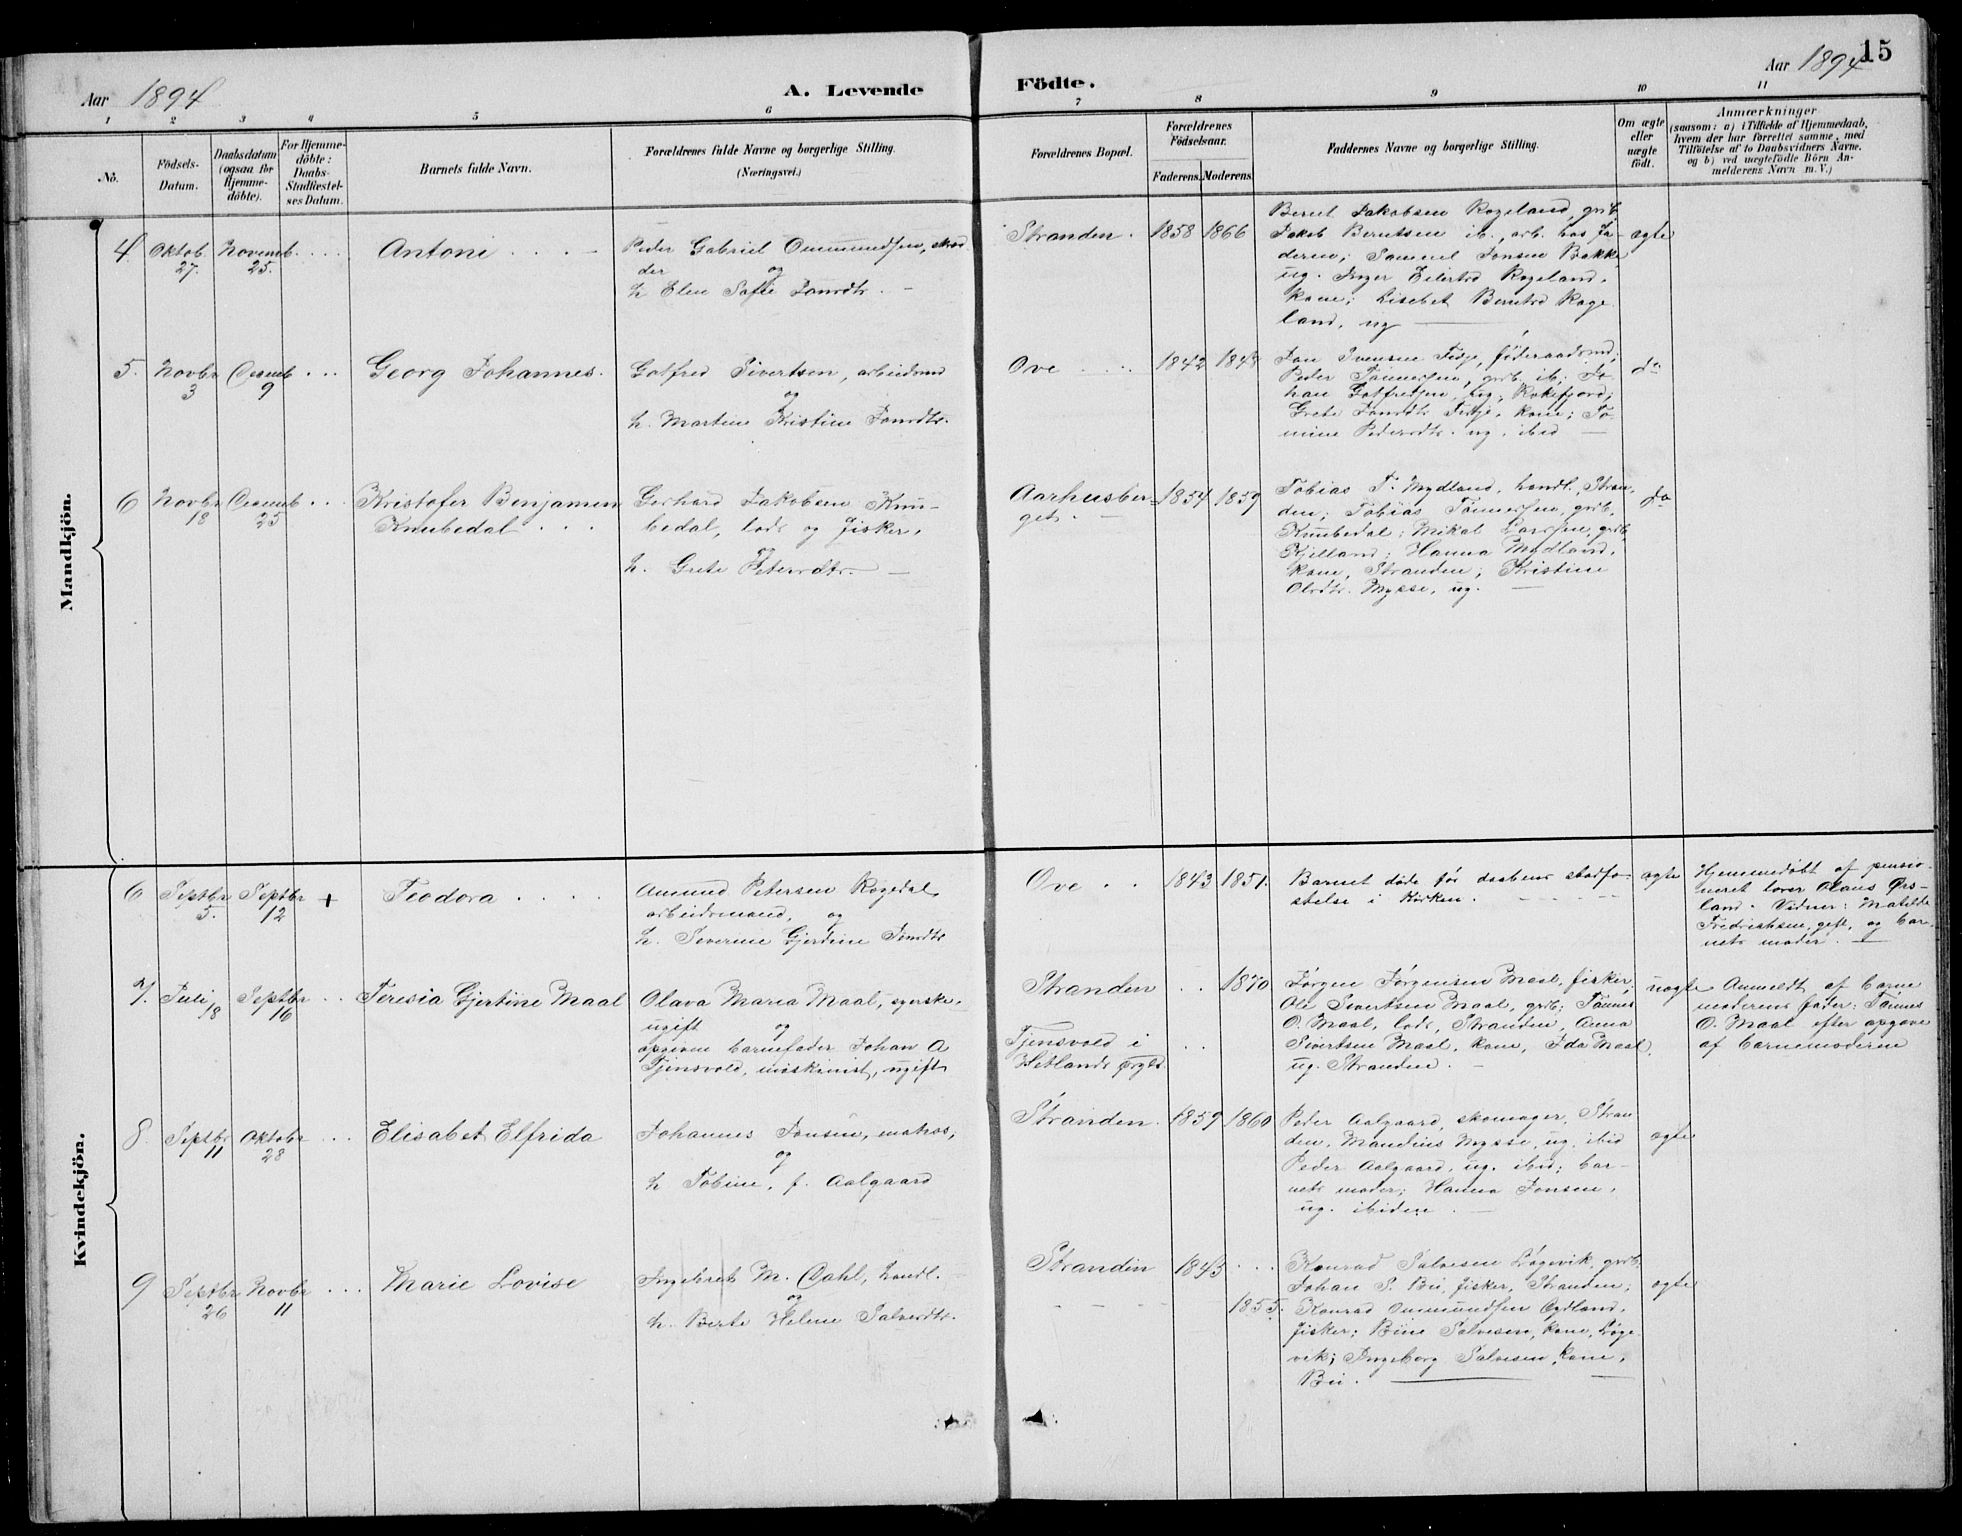 15
Aar 1894
A. Levende
Födte.
Aar 1894
1 2 3 4 5 6 7 8 9 10 11
No.
Födsels-
Datum.
Daabsdatum
(ogsaa for
Hjemme-
döbte).
For Hjemme-
döbte:
Daabs-
Stadfæstel-
ses Datum.
Barnets fulde Navn.
Forældrenes fulde Navne og borgerlige Stilling.
(Næringsvei.)
Forældrenes Bopæl.
Forældrenes
Födselsaar.
Faderens. Moderens.
Faddernes Navne og borgerlige Stilling.
Om ægte
eller
uægte
födt.
Anmærkninger
(saasom: a) i Tilfælde af Hjemmedaab,
hvem der har forrettet samme, med
Tilföielse af to Daabsvidners Navne.
og b) ved uægtefödte Börn An-
melderens Navn m.V.)
Mandkjön.
4. Oktob.
27.
Novemb.
25.
Antoni
Peder Gabriel Ommundsen,
og
h Elen Sofie
Stranden.
1858 1866
Berut Jakobsen Rogeland, grb.
Jakob Berntsen ib., arb. hos fa-
deren; Samuel Jonsen Bakke
ug. Inger Eilertsd Rogeland.
kone; Lisebet Berntsd Roge
land, ug
ægte
5. Novbr
3
Desemb
9
Georg Johannes.
Gotfred Sivertsen, arbeidsmd
og
h. Martine Kristine
Ove
1842
Jan Svensen
Peder Tönnessen, grb. ib; Jo-
han Gotfredsen, ug,
Grete kone; To-
mine Pedersdtr. ug. ibid
do
6 Novbr
18
Desemb
25
Kristofer Benjamin
Knubedal
Gerhard Jakobsen Knu-
bedal, lods og fisker,
h. Grete Petersdtr.
Aarhusber-
get.
1854 1859
Tobias T. Mydland, handl., Stran-
den; Tobias Tönnessen, grb.
Knubedal; Mikal Larssen, grb,
Kjelland; Hanna Mydland,
kone, Stranden; Kristine
Olsdtr. Mysse, ug.
do
Kvindekjön.
6 Septbr
5.
Septbr
12
+
Teodora
Amund Petersen Rogedal
arbeidsmand, og
h. Severine Gjertine
Ove
1843 1851.
Barnet döde før daabens stadfæ-
stelse i kirken.
ægte
Hjemmedøbt af pensio-
neret lærer Olaus Ørs-
land. Vidner: Matilde
Fredriksen, gift, og bar-
nets moder.
7. Juli
18
Septbr
16
Teresia Gjertine Maal
Olava Maria Maal, syerske,
ugift og
opgiven barnefader Johan A
Tjensvold, maskinist, ugift
Stranden
Tjensvold i
Hetlands
1870
Jørgen Jørgensen Maal, fisker
Ole Sivertsen Maal, grb; Tönnes
O. Maal, lods, Stranden, Anna
Sivertsen Maal, kone, Ida Maal,
ug. Stranden.
uægte
Anmeldt af barne
moderens fader: Tönnes
O. Maal efter opgave
af barnemoderen
8. Septbr
11
Oktobr
28
Elisabet Elfrida
Johannes Jonsen, matros,
og
h Tobine, f. Aalgaard
Stranden.
1859 1860
Peder Aalgaard, skomager, Stran
den, Mandius Mysse, ug. ibid
Peder Aalgaard, ug. ibid; bar-
nets moder; Hanna Jonsen,
ug. ibidem.
ægte
9 Septbr
26
Novbr
11
Marie Lovise
Ingebret M. Dahl, handl.
og
h. Berte Helene Salvesdtr.
Stranden
1843
1855.
Konrad Salvesen Løgevik, grb.
Johan S. Bu, fisker, Stranden;
Konrad Ommundsen Eydland,
fisker; Bine Salvesen, kone, Løge
vik; Ingeborg Salvesen, kone,
Bu.
ægte